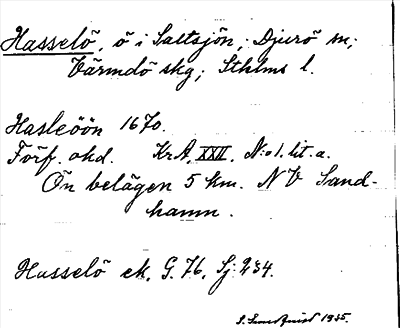 Hasselö, ö i Saltsjön; Djurö sn;
Värmdö skg; Sthlms l.
Hasleöön 1670.
Förf. okd. Kr.A. XXII. N:o 1. lit. a.
Ön belägen 5 km. NV Sand-
hamn.
Hasselö ek. G. 76, Sj: 234.
1935.